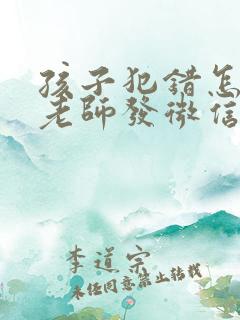 孩子犯錯怎
老師發微信
李道宗
未經同意禁止轉載